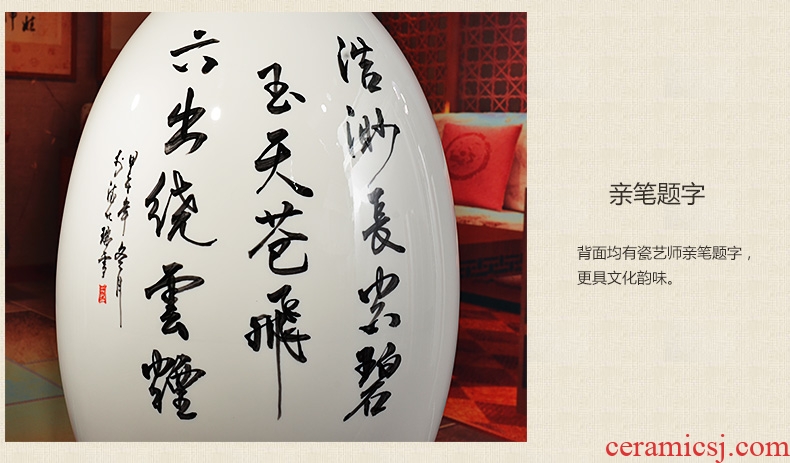 浩渺長空碧
玉天苍飛
六出绕雲煙
甲午年冬月
亲笔题字
背面均有瓷艺师亲笔题字，
更具文化韵味。
ceramicsj.com